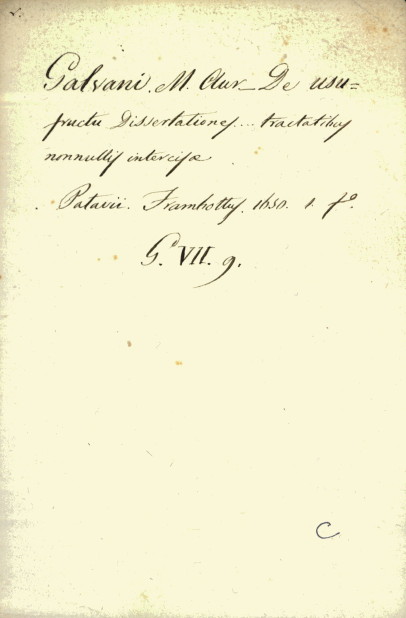 Galvani. M. Aur_ De usu=
fructu Dissertationes.... tractatibus
nonnullis intercisæ
Patavii. Frambottus. 1650. 1. fº.
G. VII. 9.
C